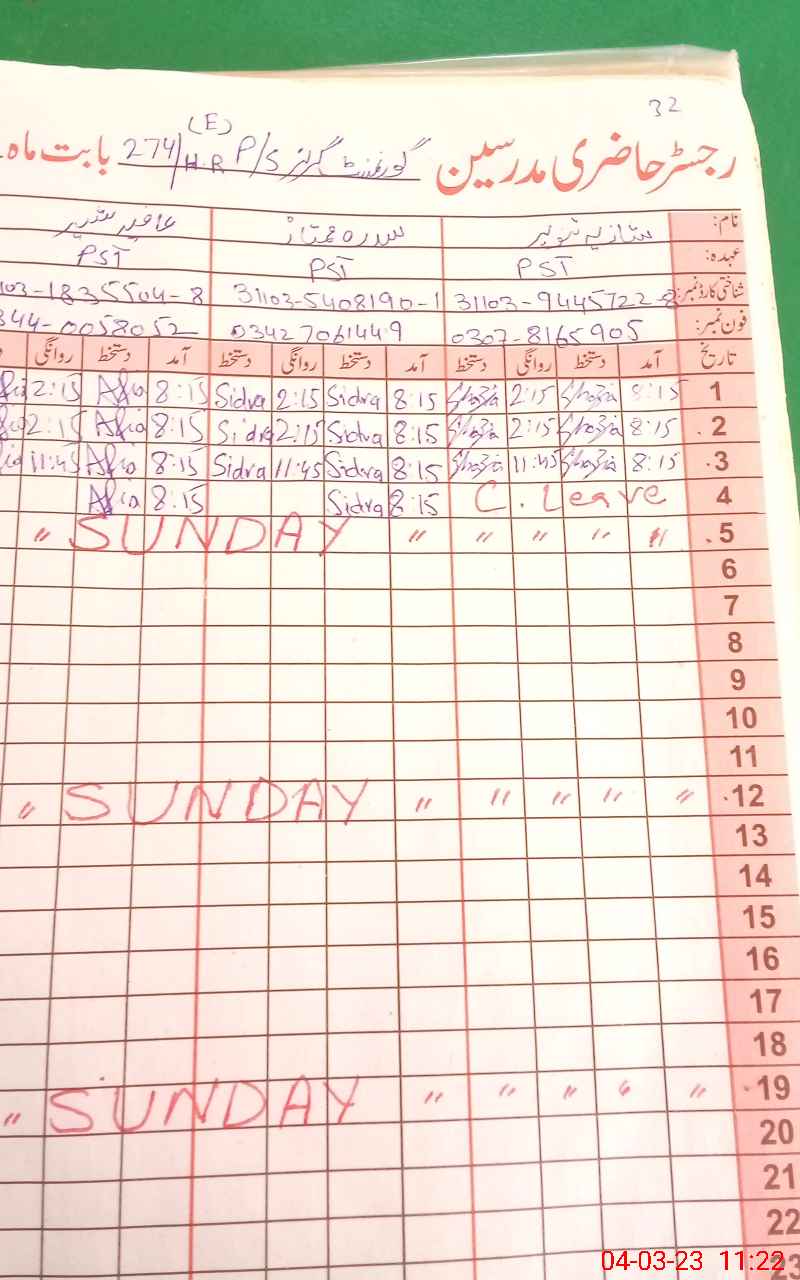 32
رجسٹر حاضری مدرسین گورنمنٹ گرلز P/S 274/H.R (E) بابت ماہ
نام: شازیہ سدرہ ممتاز
عہدہ: PST PST PST
شناختی کارڈ نمبر: 31103-9445722-8 31103-5408190-1 103-1835504-8
فون نمبر: 0307-8165905 03427061449 344-0058052
تاریخ آمد دستخط روانگی دستخط آمد دستخط روانگی دستخط آمد دستخط روانگی
1 8:15 Shazia 2:15 Shazia 8:15 Sidra 2:15 Sidra 8:15 Afia 2:15
2 8:15 Shazia 2:15 Shazia 8:15 Sidra 2:15 Sidra 8:15 Afia 2:15
3 8:15 Shazia 11:45 Shazia 8:15 Sidra 11:45 Sidra 8:15 Afia 11:45
4 C. Leave 8:15 Sidra 8:15 Afia
5 " " " " " SUNDAY "
6
7
8
9
10
11
12 " " " " " SUNDAY "
13
14
15
16
17
18
19 " " " " " SUNDAY "
20
21
22
23
04-03-23 11:22